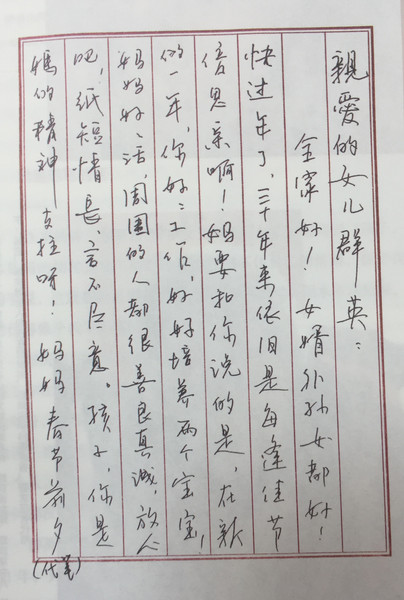 親愛的女儿群英：
全家好！女婿外孙女都好！
快过年了，三十年来依旧是每逢佳节
倍思亲啊！妈要和你说的是，在新
的一年，你好：工作，好好培养两个宝宝，
妈妈好：活，周围的人都很善良真诚，放心
吧，纸短情長，言不尽意。孩子，你是
媽的精神支柱呀！ 妈妈 春节前夕
(代笔)